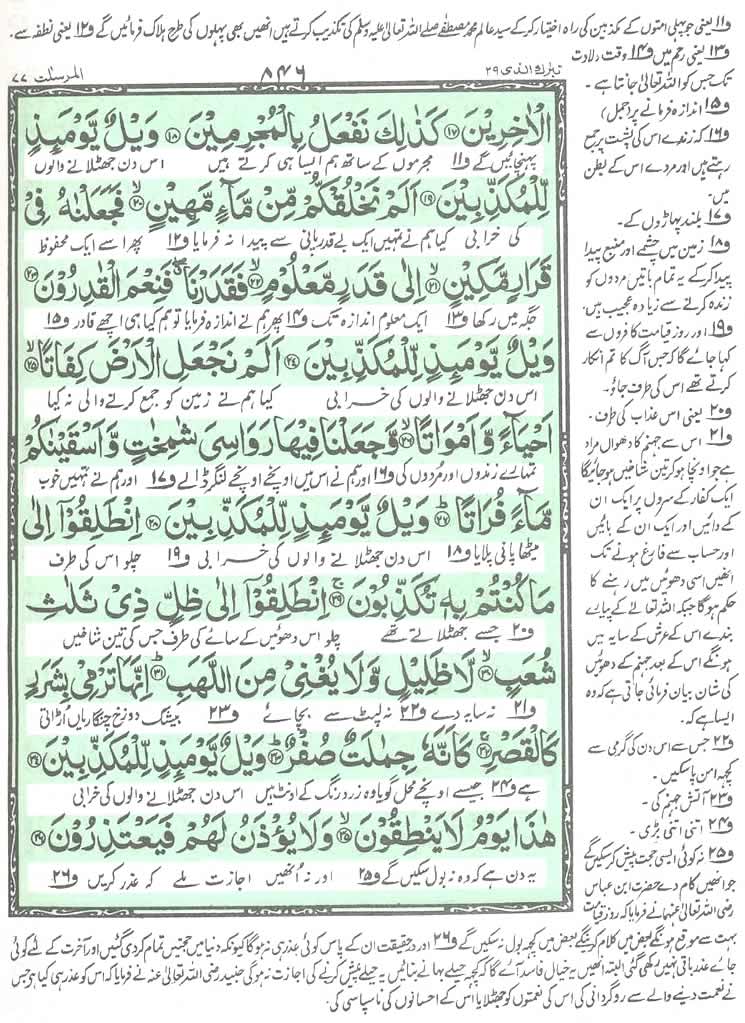 و۱۱ یعنی جو پہلی امتوں کے مکذبین کی راہ اختیار کرکے سید عالم محمد مصطفےٰ صلے اللہ تعالیٰ علیہ وسلم کی تکذیب کرتے ہیں انھیں بھی پہلوں کی طرح ہلاک فرمائیں گے و۱۲ یعنی نطفہ سے۔
و۱۳ یعنی رحم میں و۱۴ وقت ولادت
تک جس کو اللہ تعالیٰ جانتا ہے۔
و۱۵ اندازہ فرمانے پر (جمل)
و۱۶ کہ زندے اس کی پشت پر جمع
رہتے ہیں اور مردے اس کے بطن
میں۔
و۱۷ بلند پہاڑوں کے۔
و۱۸ زمین میں چشمے اور منبع پیدا
پیدا کرکے یہ تمام باتیں مردوں کو
زندہ کرنے سے زیادہ عجیب ہیں،
و۱۹ اور روز قیامت کافروں سے
کہا جائے گا کہ جس آگ کا تم انکار
کرتے تھے اس کی طرف جاؤ۔
و۲۰ یعنی اس عذاب کی طرف۔
و۲۱ اس سے جہنم کا دھواں مراد
ہے جو اونچا ہو کر تین شاخیں ہوجائیگا
ایک کفار کے سروں پر ایک ان
کے دائیں اور ایک ان کے بائیں
اور حساب سے فارغ ہونے تک
انھیں اسی دھوئیں میں رہنے کا
حکم ہوگا جبکہ اللہ تعالےٰ کے پیارے
بندے اس کے عرش کے سایہ میں
ہونگے اس کے بعد جہنم کے دھوئیں
کی شان بیان فرمائی جاتی ہے کہ وہ
ایسا ہے کہ۔
و۲۲ جس سے اس دن کی گرمی سے
کچھ امن پاسکیں۔
و۲۳ آتش جہنم کی۔
و۲۴ اتنی اتنی بڑی۔
و۲۵ نہ کوئی ایسی حجت پیش کر سکیں گے
جو انھیں کام دے حضرت ابن عباس
رضی اللہ تعالیٰ عنہما نے فرمایا کہ روز قیامت
تبٰرك الذی ۲۹
۸۴۶
المرسلت ۷۷
الْاٰخِرِیْنَ ۝۱۷ كَذٰلِكَ نَفْعَلُ بِالْمُجْرِمِیْنَ ۝۱۸ وَیْلٌ یَّوْمَىٕذٍ
پہنچائیں گے و۱۱ مجرموں کے ساتھ ہم ایسا ہی کرتے ہیں اس دن جھٹلانے والوں
لِّلْمُكَذِّبِیْنَ ۝۱۹ اَلَمْ نَخْلُقْكُّمْ مِّنْ مَّآءٍ مَّهِیْنٍ ۝۲۰ فَجَعَلْنٰهُ فِیْ
کی خرابی کیا ہم نے تمہیں ایک بے قدر پانی سے پیدا نہ فرمایا و۱۲ پھر اسے ایک محفوظ
قَرَارٍ مَّكِیْنٍ ۝۲۱ اِلٰى قَدَرٍ مَّعْلُوْمٍ ۝۲۲ فَقَدَرْنَا فَنِعْمَ الْقٰدِرُوْنَ ۝۲۳
جگہ میں رکھا و۱۳ ایک معلوم اندازہ تک و۱۴ پھر ہم نے اندازہ فرمایا تو ہم کیا ہی اچھے قادر و۱۵
وَیْلٌ یَّوْمَىٕذٍ لِّلْمُكَذِّبِیْنَ ۝۲۴ اَلَمْ نَجْعَلِ الْاَرْضَ كِفَاتًا ۝۲۵
اس دن جھٹلانے والوں کی خرابی کیا ہم نے زمین کو جمع کرنے والی نہ کیا
اَحْیَآءً وَّ اَمْوَاتًا ۝۲۶ وَّ جَعَلْنَا فِیْهَا رَوَاسِیَ شٰمِخٰتٍ وَّ اَسْقَیْنٰكُمْ
تمہارے زندوں اور مُردوں کی و۱۶ اور ہم نے اس میں اونچے اونچے لنگر ڈالے و۱۷ اور ہم نے تمہیں خوب
مَّآءً فُرَاتًا ۝۲۷ وَیْلٌ یَّوْمَىٕذٍ لِّلْمُكَذِّبِیْنَ ۝۲۸ اِنْطَلِقُوْۤا اِلٰى
میٹھا پانی پلایا و۱۸ اس دن جھٹلانے والوں کی خرابی و۱۹ چلو اس کی طرف
مَا كُنْتُمْ بِهٖ تُكَذِّبُوْنَ ۝۲۹ اِنْطَلِقُوْۤا اِلٰى ظِلٍّ ذِیْ ثَلٰثِ
جسے جھٹلاتے تھے و۲۰ چلو اس دھوئیں کے سائے کی طرف جس کی تین شاخیں
شُعَبٍ ۝۳۰ لَّا ظَلِیْلٍ وَّ لَا یُغْنِیْ مِنَ اللَّهَبِ ۝۳۱ اِنَّهَا تَرْمِیْ بِشَرَرٍ
و۲۱ نہ سایہ دے و۲۲ نہ لپٹ سے بچائے و۲۳ بیشک دوزخ چنگاریاں اُڑاتی
كَالْقَصْرِ ۝۳۲ كَاَنَّهٗ جِمٰلَتٌ صُفْرٌ ۝۳۳ وَیْلٌ یَّوْمَىٕذٍ لِّلْمُكَذِّبِیْنَ ۝۳۴
ہے و۲۴ جیسے اونچے محل گویا وہ زرد رنگ کے اونٹ ہیں اس دن جھٹلانے والوں کی خرابی
هٰذَا یَوْمُ لَا یَنْطِقُوْنَ ۝۳۵ وَ لَا یُؤْذَنُ لَهُمْ فَیَعْتَذِرُوْنَ ۝۳۶
یہ دن ہے کہ وہ نہ بول سکیں گے و۲۵ اور نہ اُنھیں اجازت ملے کہ عذر کریں و۲۶
بہت سے موقع ہونگے بعض میں کلام کرینگے بعض میں کچھ بول نہ سکیں گے و۲۶ اور درحقیقت ان کے پاس کوئی عذر ہی نہ ہوگا کیونکہ دنیا میں حجتیں تمام کردی گئیں اور آخرت کے لئے کوئی
جائے عذر باقی نہیں رکھی گئی البتہ انھیں یہ خیال فاسد آئے گا کہ کچھ حیلے بہانے بنائیں یہ حیلے پیش کرنے کی اجازت نہ ہوگی جنید رضی اللہ تعالیٰ عنہ نے فرمایا کہ اس کو عذر ہی کیا ہے جس
نے نعمت دینے والے سے روگردانی کی اس کی نعمتوں کو جھٹلایا اس کے احسانوں کی ناسپاسی کی۔